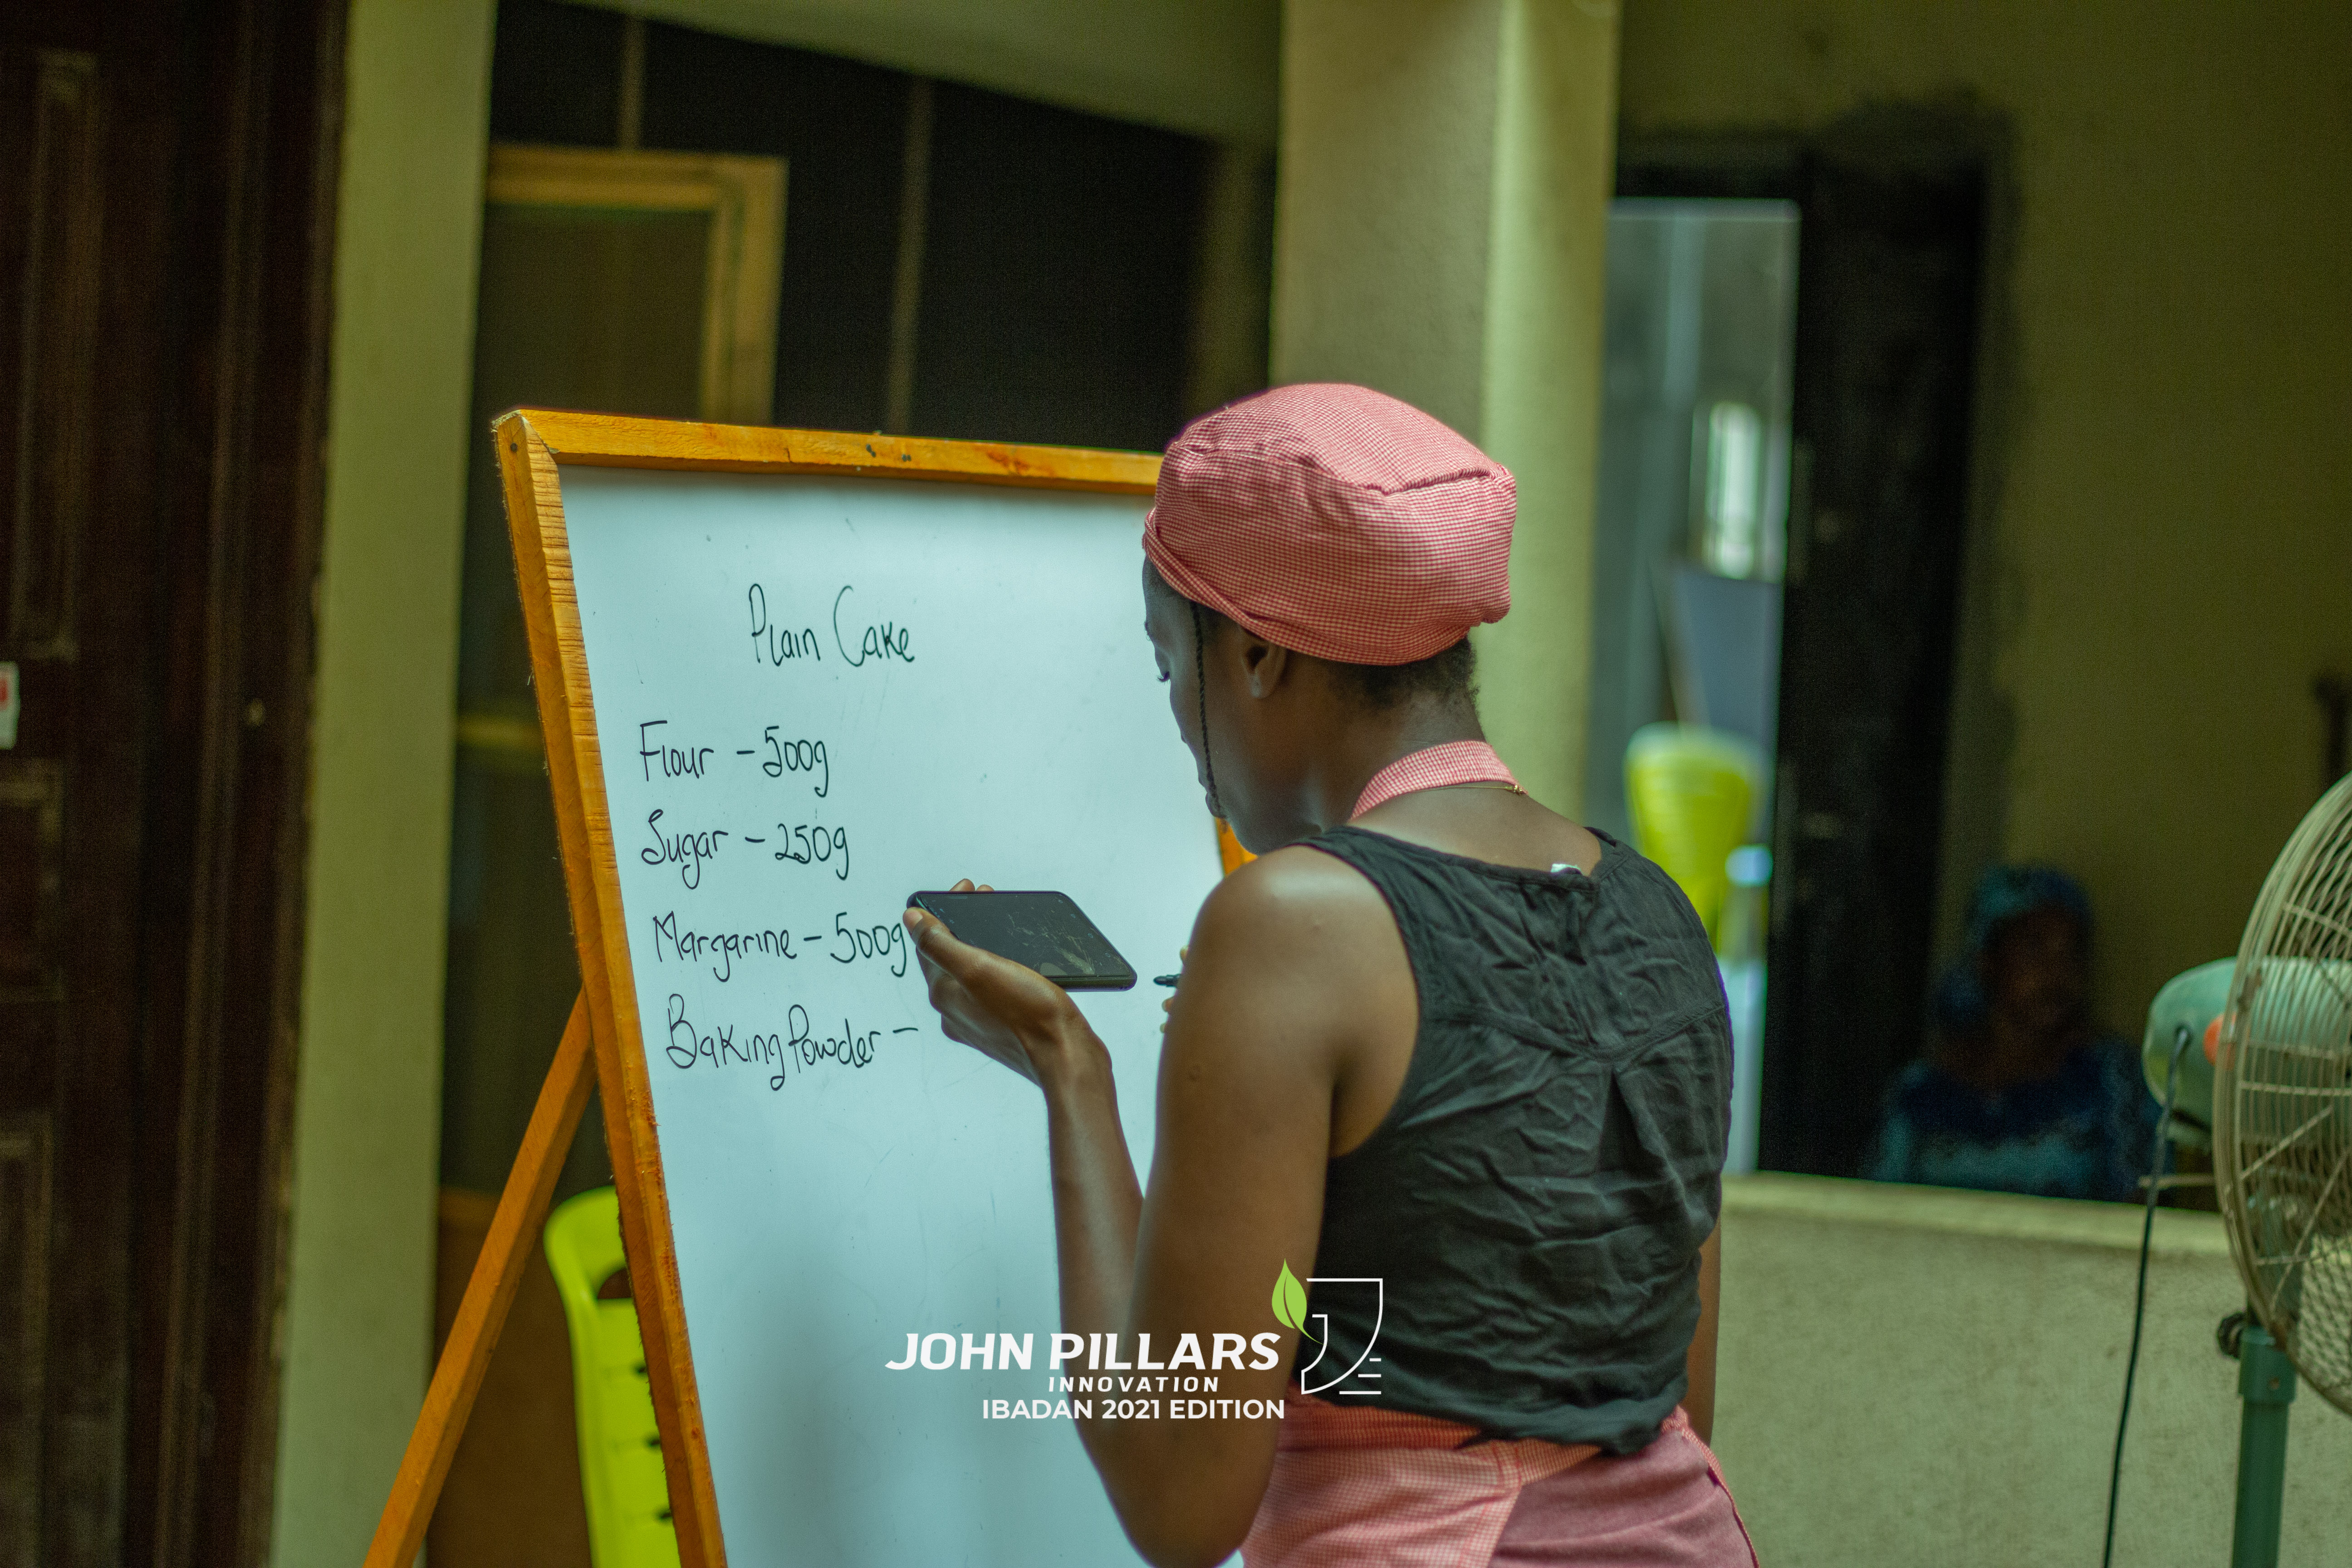 Plain Cake
Flour - 500g
Sugar - 250g
Margarine - 500g
Baking Powder -
JOHN PILLARS
INNOVATION
IBADAN 2021 EDITION